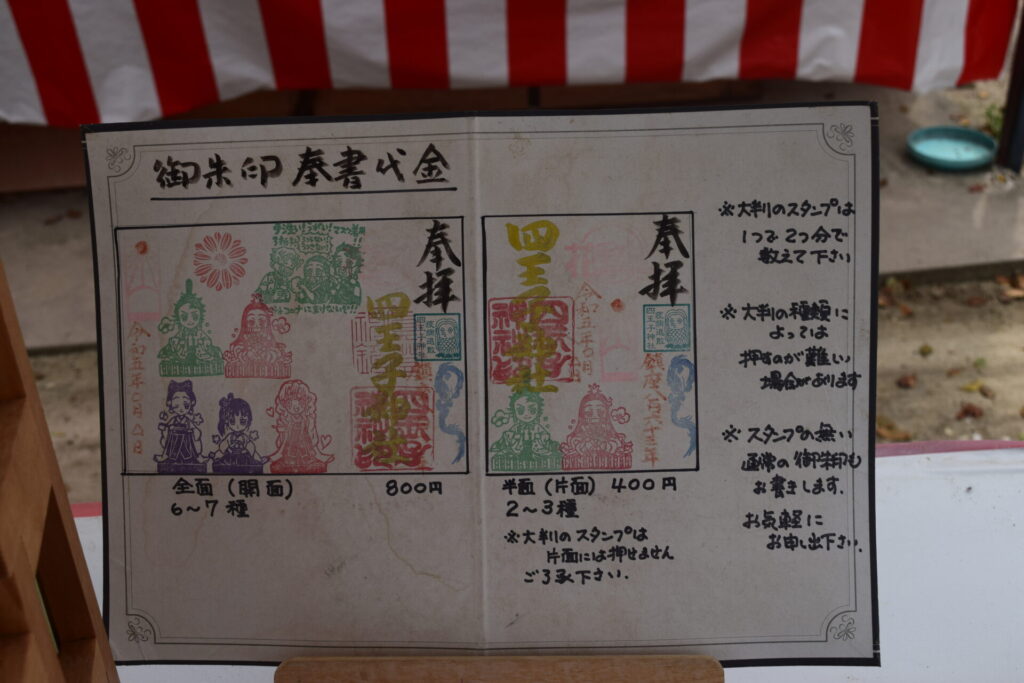 御朱印奉書代金
奉拝
四王子神社
疫病退散
四王子神社
令和五年〇月〇日
全面(開面) 800円
6～7種
奉拝
四王子神社
疫病退散
四王子神社
令和五年〇月
半面(片面) 400円
2～3種
※大判のスタンプは
片面には押せません
ご了承下さい.
※大判のスタンプは
1つで2つ分で
数えて下さい
※大判の種類に
よっては
押すのが難しい
場合があります
※スタンプの無い
通常の御朱印も
お書きします.
お気軽に
お申し出下さい.